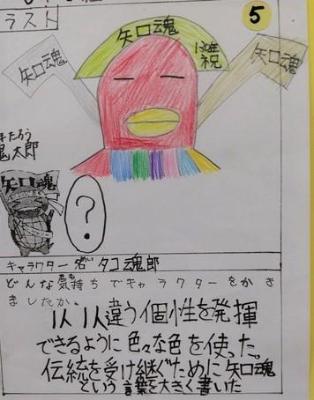 ラスト
5
矢口魂
祝
矢口魂
矢口魂
鬼太郎
矢口魂
?
キャラクター名 タコ魂郎
どんな気持ちでキャラクターをかき
ましたか。
1人1人違う個性を発揮
できるように色々な色を使った。
伝統を受け継ぐために矢口魂
という言葉を大きく書いた